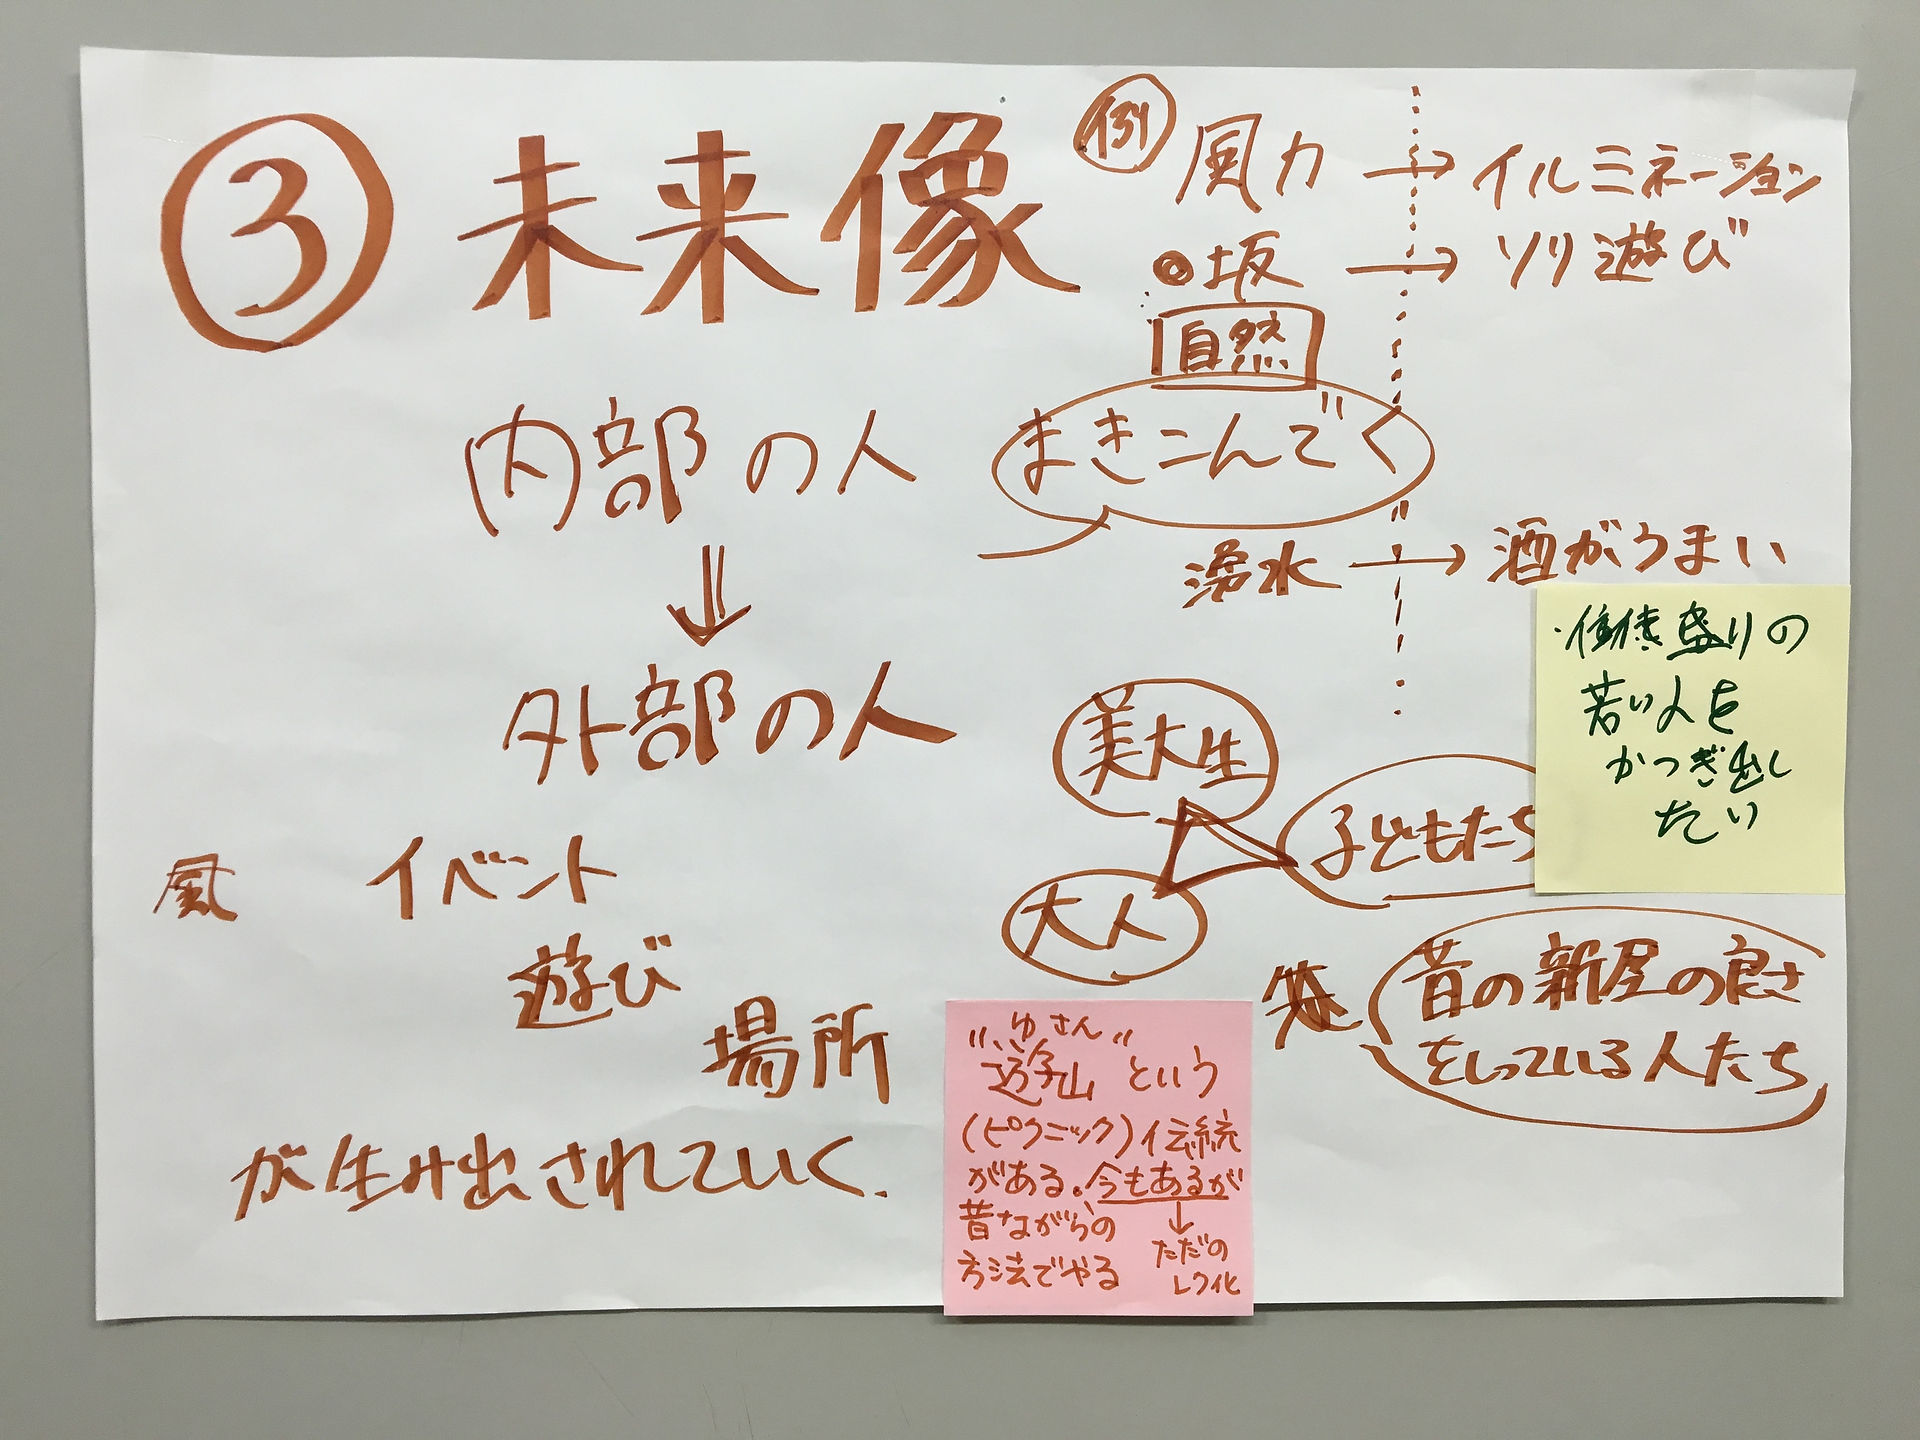 ③ 未来像
内部の人
⇓
外部の人
風 イベント
遊び
場所
が生み出されていく.
例 風力 → イルミネーション
◎坂 → ソリ遊び
自然
まきこんでく
湧水 → 酒がうまい
美大生
子どもたち
大人
昔の新屋の良さ
をしっている人たち
盛りの
若い人を
かつぎ出し
たい
ゆさん
"遊山"という
(ピクニック)伝統
がある。今もあるが
↓
ただの
レク化
昔ながらの
方法でやる